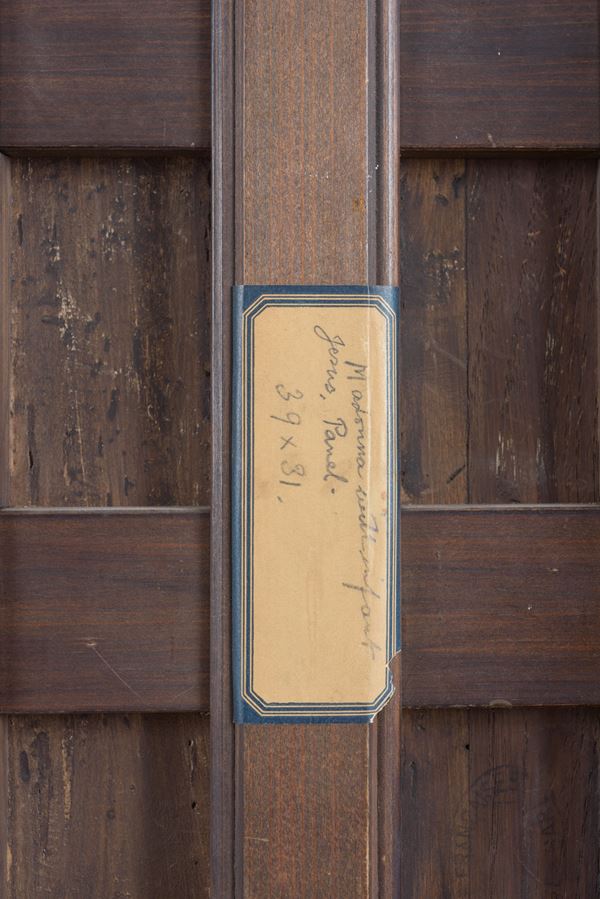 Madonna with infant
Jesus, Panel.
39 x 31.